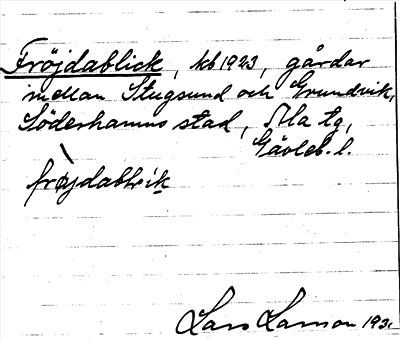 Fröjdablick, kb 1923, gårdar
mellan Stugsund och Grundvik,
Söderhamns stad, Ala tg,
Gävleb. l.
fröjdablik
Lars Larsson 193